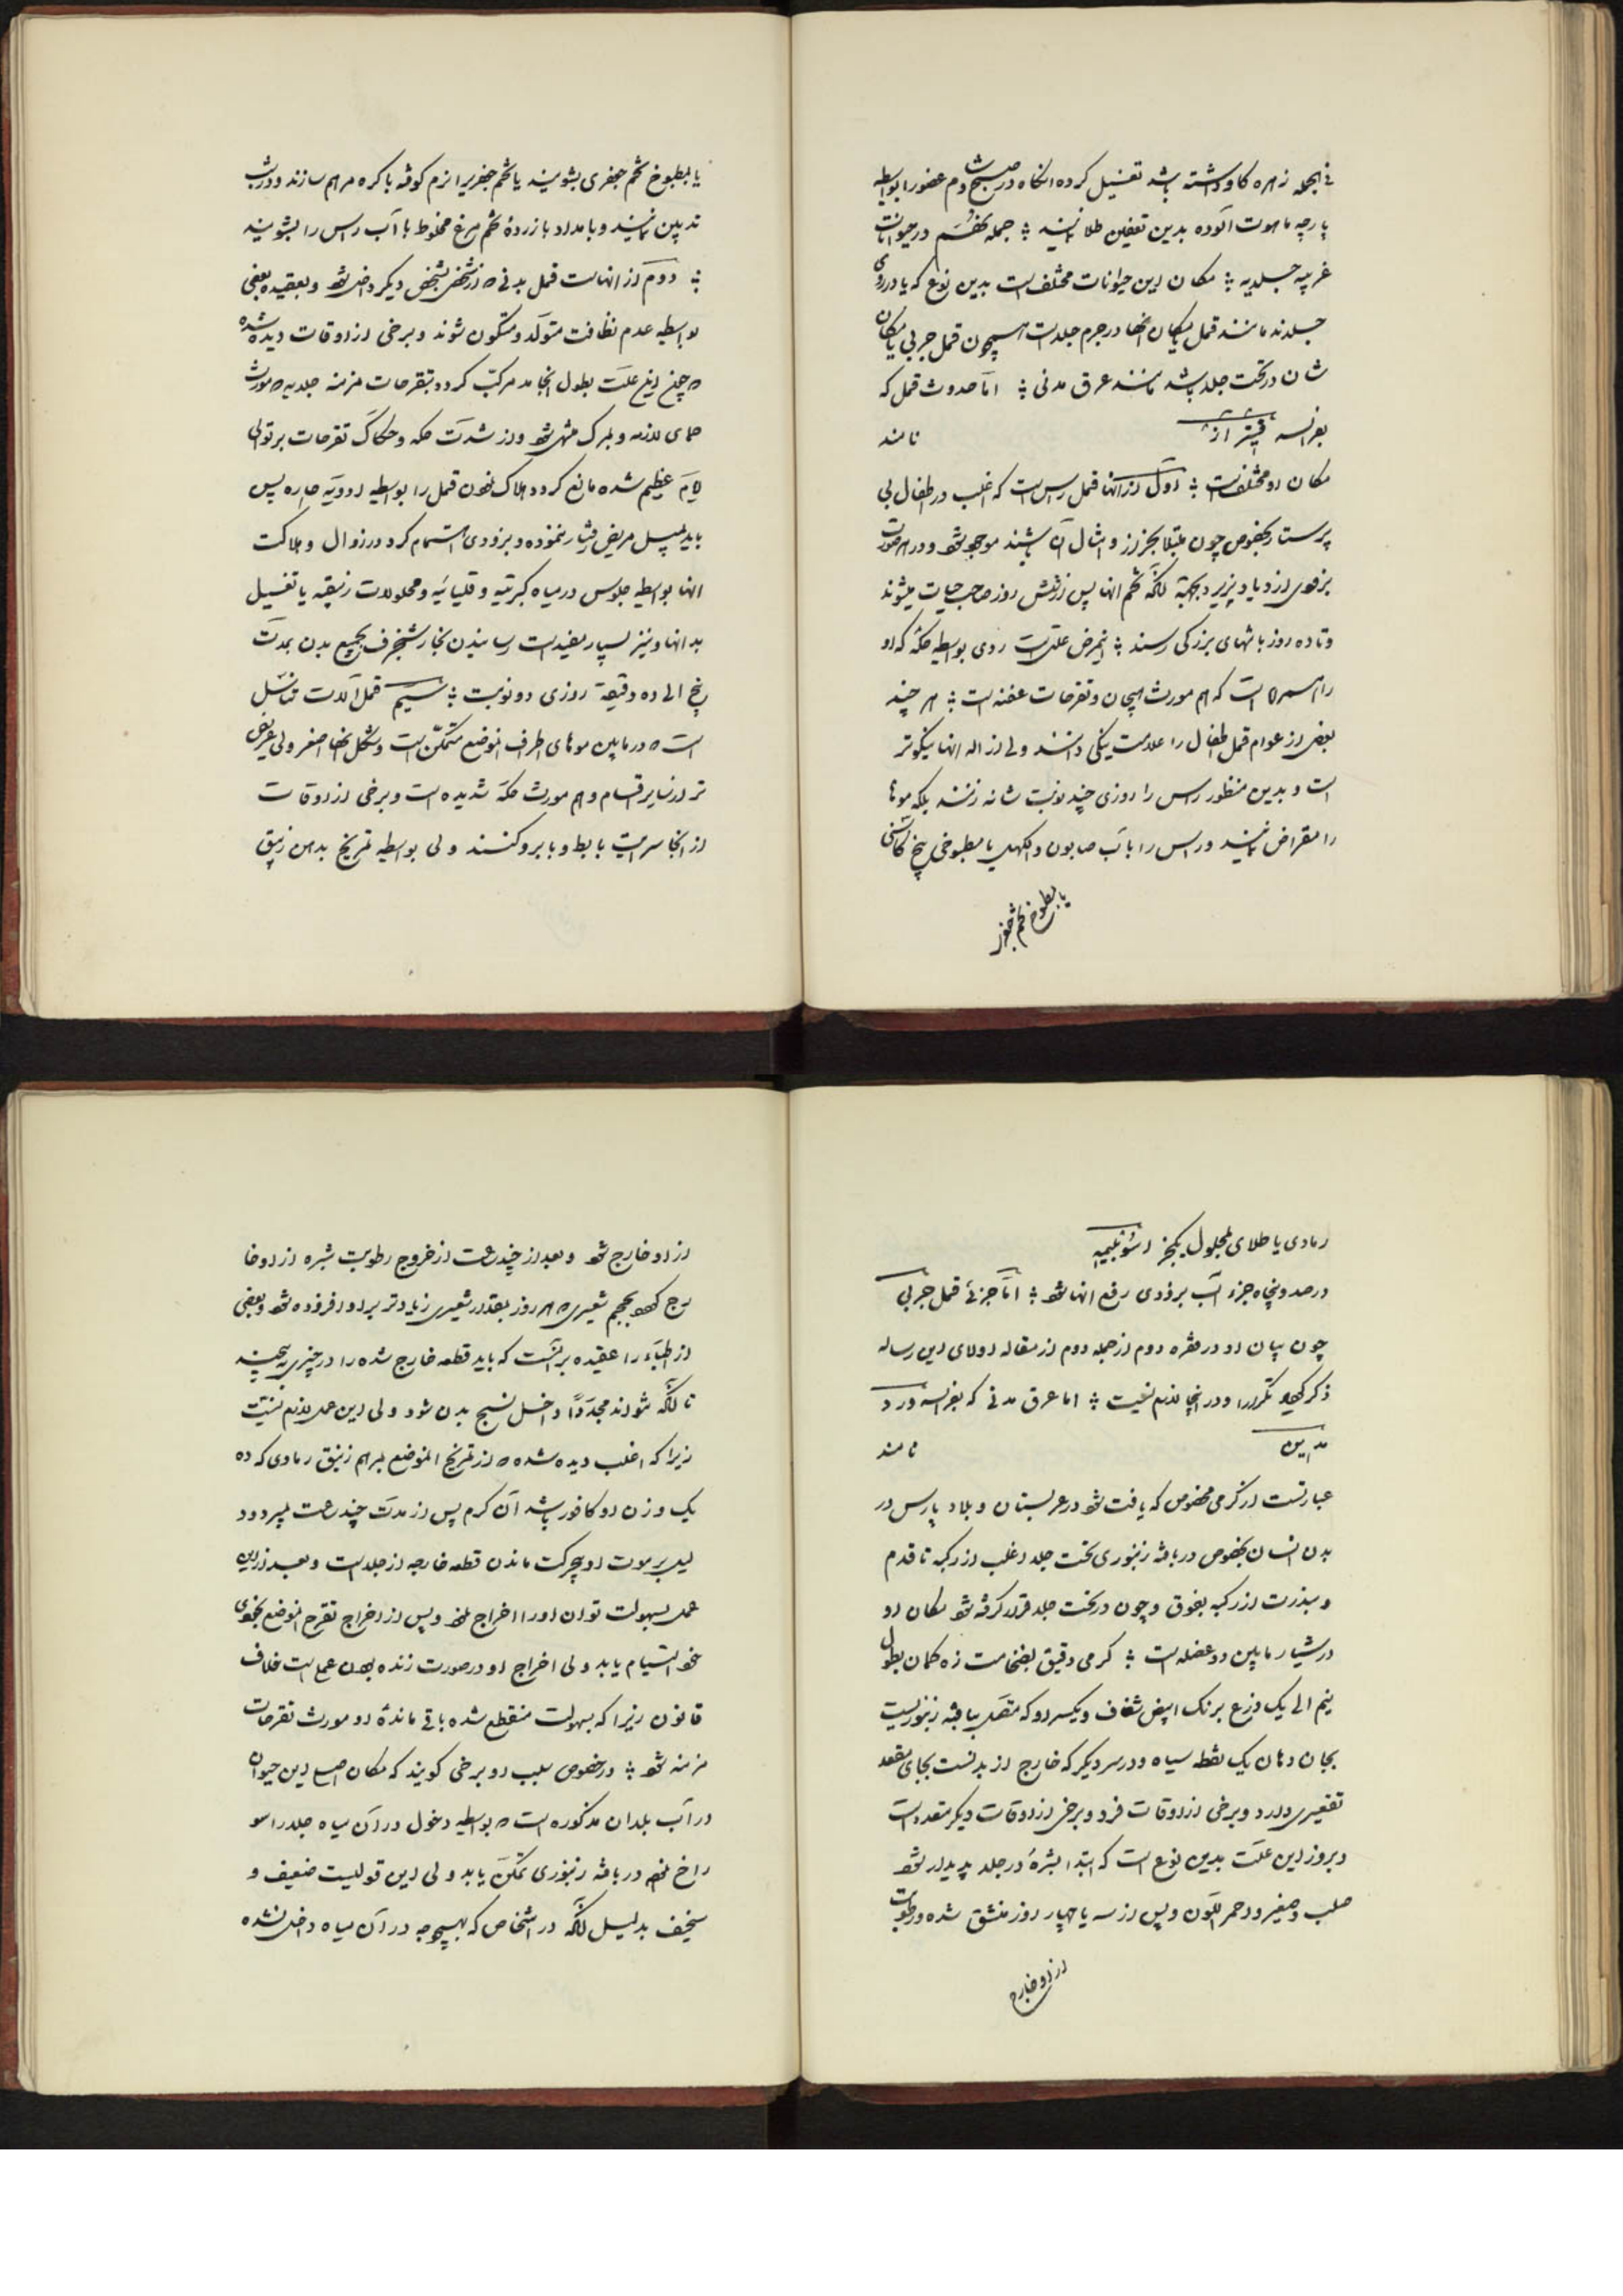 فی الجمله زهره گاو داشته باشد تغسیل کرده انگاه در صبح و شام عضو را بواسطه
پارچه ماهوت آلوده بدین تعفین طلا نمایند ؛ جمله هفتم در حیوانات
غریبه جلدیه ؛ مکان این حیوانات مختلف است بدین نوع که یا در روی
جلدند مانند قمل یا مکان انها در جرم جلد است همچون قمل جربی یا مکان
شان در تحت جلد باشد مانند عرق مدنی ؛ اما حدوث قمل که
بفرانسه نامند
مکان او مختلف است ؛ اول از انها قمل راس است که اغلب در اطفال بی
پرستار بخصوص چون مبتلا بخزاز و امثال آن باشند موجود شود و در هر صورت
بزودی ازدیاد پذیرد بجهة انکه تخم انها پس از شش روز صاحب حیات میشوند
و تا ده روز بانتهای بزرگی رسند ؛ اینمرض علتی است ردی بواسطه حکه که او
را همراه است که هم مورث هیجان و تقرحات عفنه است ؛ هر چند
بعضی از عوام قمل اطفال را علامت نیکی دانند ولی ازاله انها نیکوتر
است و بدین منظور راس را روزی چند نوبت شانه زنند بلکه موها
را مقراض نمایند و راس را با آب صابون و الکهل یا مطبوخی بیخ کاشنی
یا بمطبوخ تخم جعفر
یا بمطبوخ تخم جعفری بشویند یا تخم جعفری را نرم کوفته با کره مرهم سازند و در شب
تدهین نمایند و بامداد با زردهٔ تخم مرغ مخلوط با آب راس را بشویند
؛ دوم از انهاست قمل بدنی که از شخصی بشخص دیگر داخل شود و بعقیده بعضی
بواسطه عدم نظافت متولد و متکون شوند و برخی از اوقات دیده شده
که چون این علت بطول انجامد مرکب گردد بتقرحات مزمنه جلدیه که مورث
حمای لازمه و بمرک منتهی شود و از شدت حکه و حکاک تقرحات بر توالی
ایام عظیم شده مانع گردد هلاک نمودن قمل را بواسطه ادویه حاره پس
باید تبدیل مریض بسیار نموده و بزودی اهتمام کرد در زوال و هلاکت
انها بواسطه جلوس در میاه کبرتیه و قلیائیه و محلولات زیبقیه یا تغسیل
بدانها و نیز بسیار مفید است رسانیدن بخار شنجرف بجمیع بدن بمدت
پنج الی ده دقیقه روزی دو نوبت ؛ سیم قمل آلات تناسل
است که در مابین موهای اطراف انموضع متمکن است و شکل انها اصغر ولی عریض
تر از سایر اقسام و هم مورث حکه شدیده است و برخی از اوقات
از انجا سرایت بابط و بابرو کنند ولی بواسطه تمریخ بدهن زیبق
رمادی یا طلای محلول یکجزء
در صد و پنجاه جزء آب بزودی رفع انها شود ؛ اما جزئی قمل جربی
چون بیان او در فقره دوم از جمله دوم از مقاله اولای این رساله
ذکر شد تکرار او در اینجا لازم نیست ؛ اما عرق مدنی که بفرانسه درد
مدین نامند
عبارتست از کرمی مخصوص که یافت شود در عربستان و بلاد پارس در
بدن انسان بخصوص در بافته زنبوری تحت جلد اغلب از رکبه تا قدم
و بندرت از رکبه بفوق و چون در تحت جلد قرار گرفته شود مکان او
در شیار مابین دو عضله است ؛ کرمی دقیق بضخامت زه کمان بطول
نیم الی یک ذرع برنک ابیض شفاف و یکسر او که متصل ببافته زنبوریست
بجای دهان یک نقطه سیاه و در سر دیگر که خارج از بدنست بجای مقعد
تقعیری دارد و برخی از اوقات فرد و برخی از اوقات دیگر متعدد است
و بروز این علت بدین نوع است که ابتدا بثرهٔ در جلد پدیدار شود
صلب و صغیر و احمر اللون و پس از سه یا چهار روز منشق شده و رطوبت
از او خارج
از او خارج شود و بعد از چند ساعت از خروج رطوبت بثره از او خا
رج گردد بحجم شعیری که هر روز بمقدار شعیری زیادتر بر او افزوده شود و بعضی
از اطباء را عقیده بر انست که باید قطعه خارج شده را در چیزی پیچند
تا انکه نتواند مجددا داخل نسج بدن شود ولی این عمل لازم نیست
زیرا که اغلب دیده شده که از تمریخ انموضع بمرهم زیبق رمادی که ده
یک وزن او کافور باشد آن کرم پس از مدت چند ساعت بمیرد و د
لیل بر موت او بیحرکت ماندن قطعه خارجه از جلد است و بعد از این
عمل بسهولت توان او را اخراج نمود و پس از اخراج تقرح انموضع بخودی
خود التیام یابد ولی اخراج او در صورت زنده بودن عملی است خلاف
قانون زیرا که بسهولت منقطع شده باقی ماندهٔ او مورث تقرحات
مزمنه شود ؛ در خصوص سبب او برخی گویند که مکان اصل این حیوان
در آب بلدان مذکوره است که بواسطه دخول در آن میاه جلد را سو
راخ نموده در بافته زنبوری تمکن یابد ولی این قولیست ضعیف و
سخیف بدلیل انکه در اشخاص که بهیچوجه در آن میاه داخل نشده